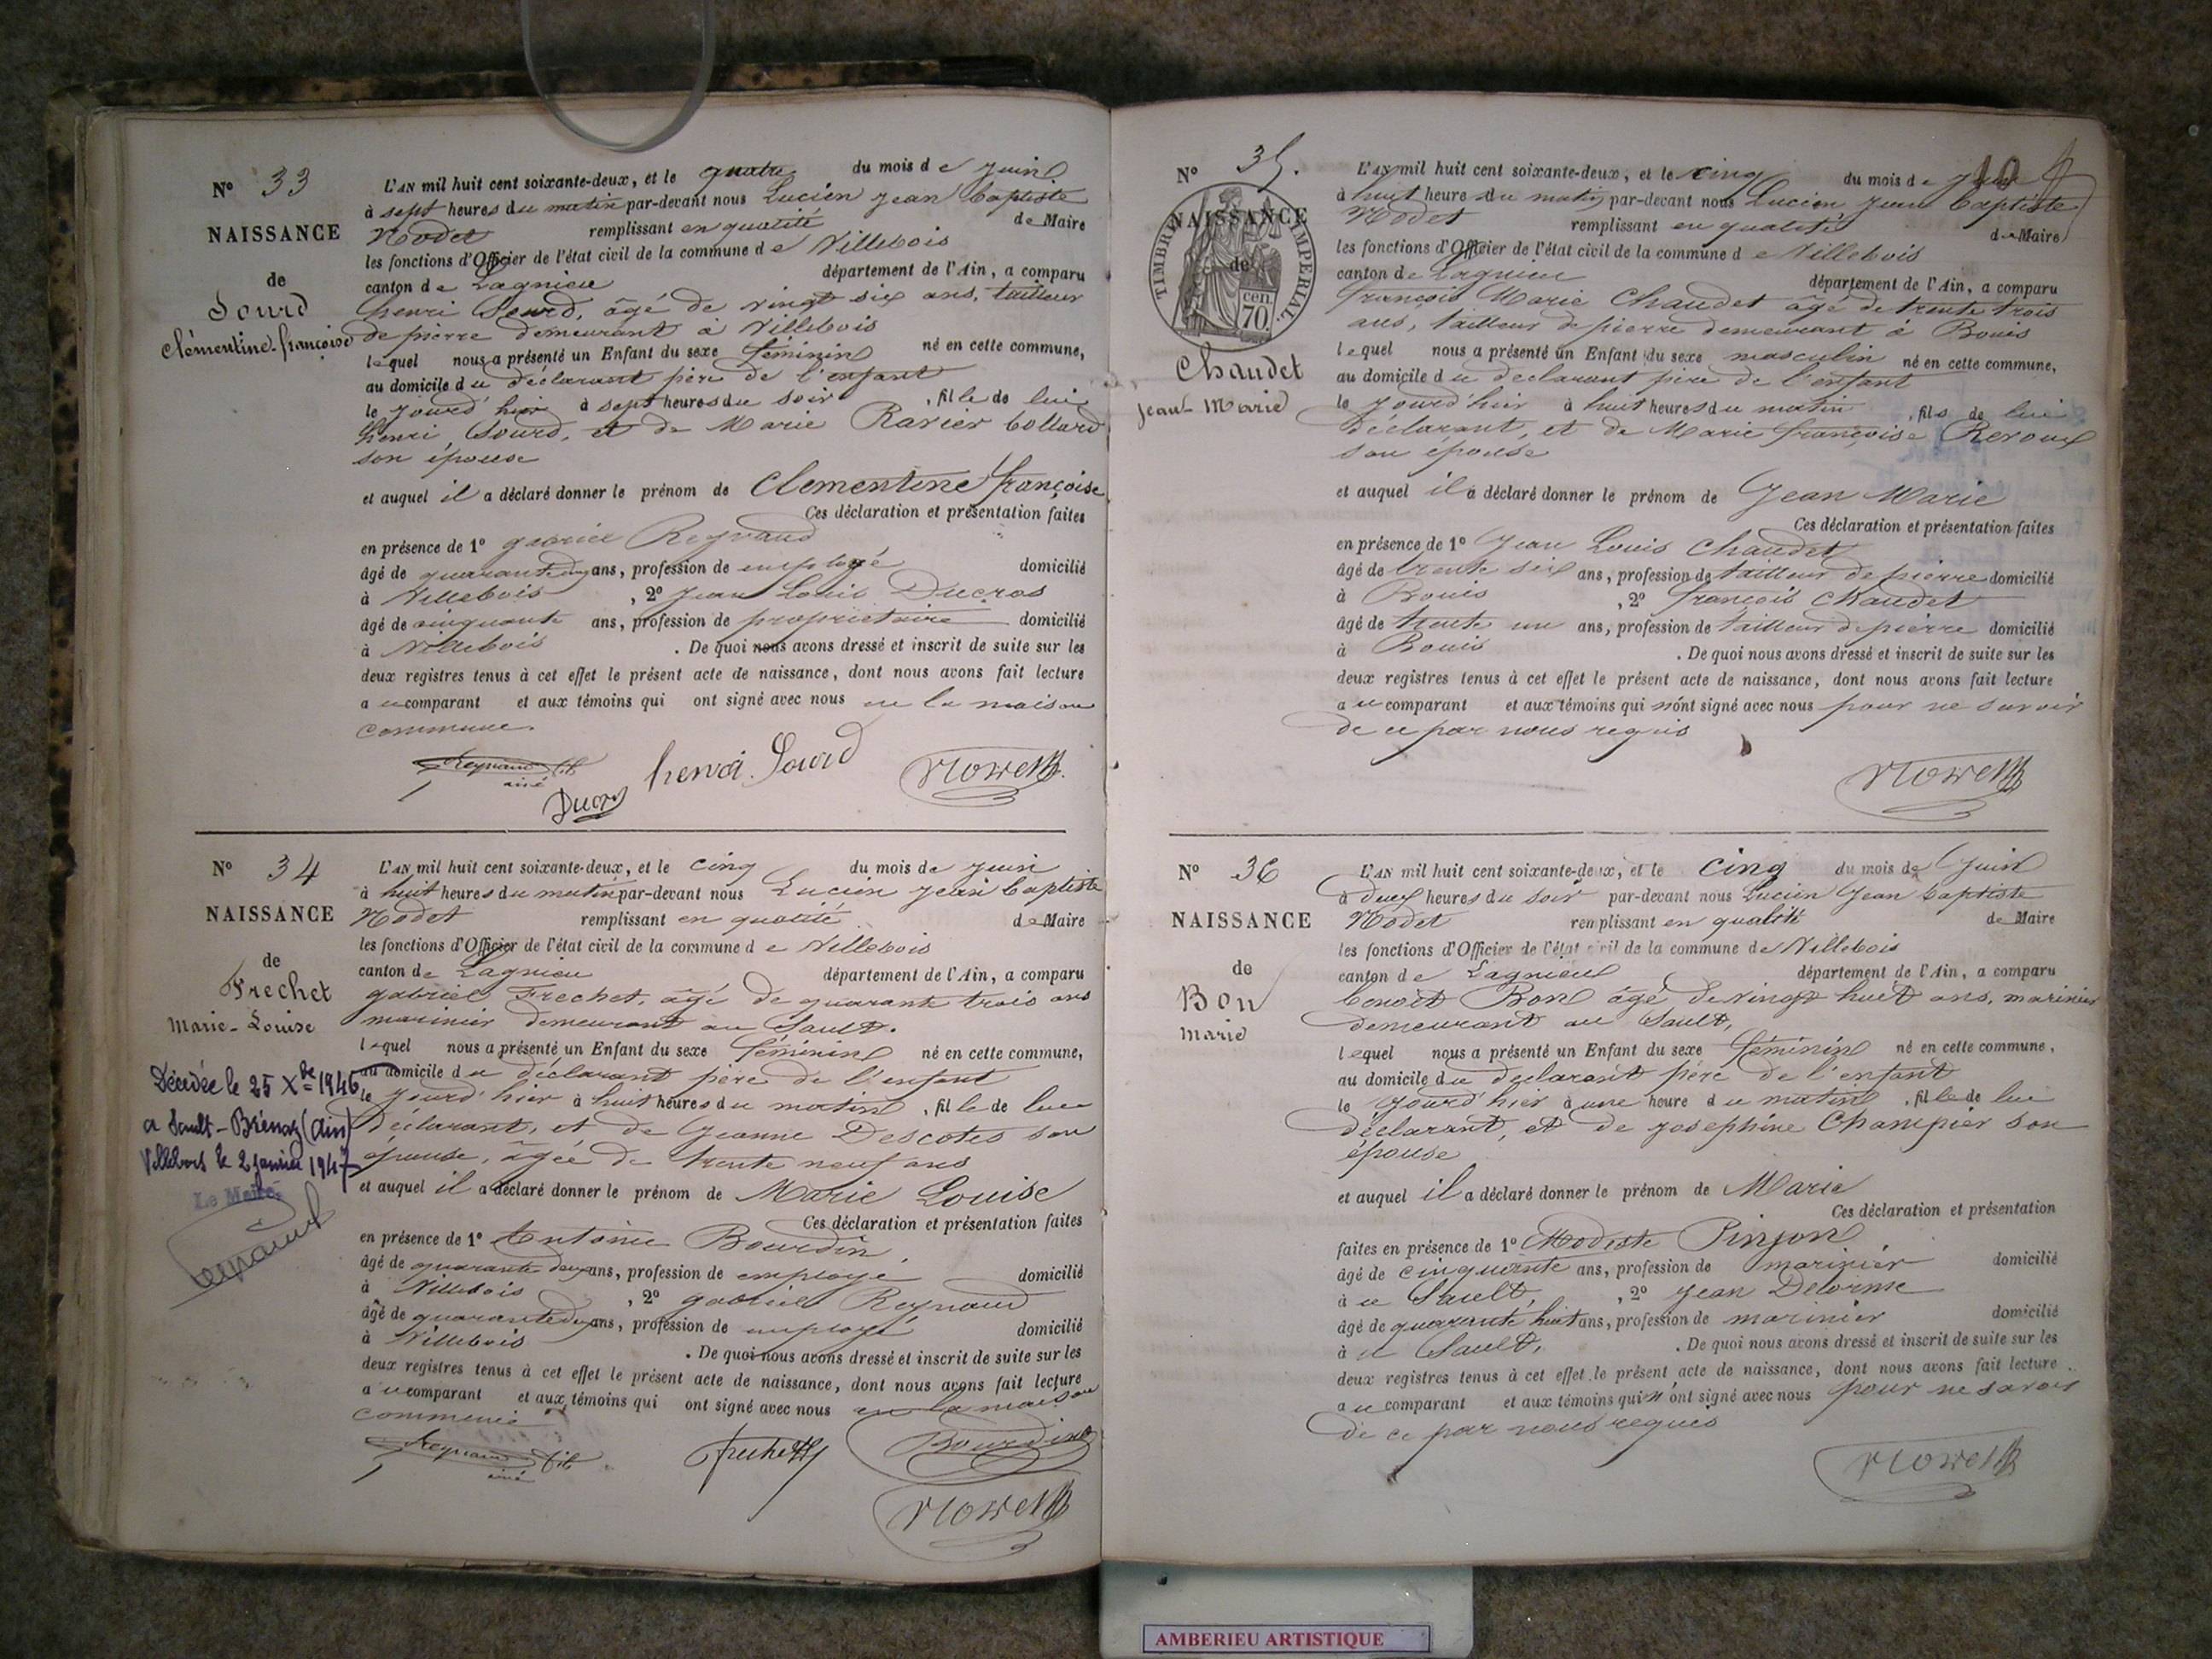 N° 33
NAISSANCE
de
Sourd
Clémentine-françoise
L'AN mil huit cent soixante-deux, et le quatre du mois de Juin
à sept heures du matin par-devant nous Lucien Jean Baptiste
Nodet remplissant en qualité de Maire
les fonctions d'Officier de l'état civil de la commune de Villebois
canton de Lagnieu département de l'Ain, a comparu
henri Sourd, âgé de vingt six ans, tailleur
de pierre demeurant à Villebois
lequel nous a présenté un Enfant du sexe féminin né en cette commune,
au domicile du déclarant père de l'enfant
le jourd'hier à sept heures du soir, fille de lui
henri Sourd, et de Marie Ravier Collard
son épouse
et auquel il a déclaré donner le prénom de Clementine françoise
Ces déclaration et présentation faites
en présence de 1° gabriel Reynaud
âgé de quarante deux ans, profession de employé domicilié
à Villebois, 2° Jean Louis Ducros
âgé de cinquante ans, profession de propriétaire domicilié
à Villebois. De quoi nous avons dressé et inscrit de suite sur les
deux registres tenus à cet effet le présent acte de naissance, dont nous avons fait lecture
au comparant et aux témoins qui ont signé avec nous en la maison
commune.
Reynaud fils
ainé
henri Sourd
Ducros
Nodet
N° 34
NAISSANCE
de
Frechet
Marie-Louise
Décédée le 25 Xbre 1946
à Sault-Brénaz (Ain)
Villebois le 2 janvier 1947
Le Maire
L'AN mil huit cent soixante-deux, et le cinq du mois de Juin
à huit heures du matin par-devant nous Lucien Jean Baptiste
Nodet remplissant en qualité de Maire
les fonctions d'Officier de l'état civil de la commune de Villebois
canton de Lagnieu département de l'Ain, a comparu
gabriel Frechet, âgé de quarante trois ans
marinier demeurant au Sault.
lequel nous a présenté un Enfant du sexe féminin né en cette commune,
au domicile du déclarant père de l'enfant
le jourd'hier à huit heures du matin, fille de lui
déclarant, et de Jeanne Descotes son
épouse, âgée de trente neuf ans
et auquel il a déclaré donner le prénom de Marie Louise
Ces déclaration et présentation faites
en présence de 1° Antoine Bourdin
âgé de quarante deux ans, profession de employé domicilié
à Villebois, 2° gabriel Reynaud
âgé de quarante deux ans, profession de employé domicilié
à Villebois. De quoi nous avons dressé et inscrit de suite sur les
deux registres tenus à cet effet le présent acte de naissance, dont nous avons fait lecture
au comparant et aux témoins qui ont signé avec nous en la maison
commune
Reynaud fils
ainé
Frechet
Bourdin
Nodet
N° 35.
TIMBRE IMPERIAL
cen. 70.
NAISSANCE
de
Chaudet
Jean-Marie
L'AN mil huit cent soixante-deux, et le cinq du mois de Juin
à huit heure du matin par-devant nous Lucien Jean Baptiste
Nodet remplissant en qualité de Maire
les fonctions d'Officier de l'état civil de la commune de Villebois
canton de Lagnieu département de l'Ain, a comparu
françois Marie Chaudet âgé de trente trois
ans, tailleur de pierre demeurant à Bouis
lequel nous a présenté un Enfant du sexe masculin né en cette commune,
au domicile du déclarant père de l'enfant
le jourd'hier à huit heures du matin, fils de lui
déclarant, et de Marie françoise Reroux
son épouse
et auquel il a déclaré donner le prénom de Jean Marie
Ces déclaration et présentation faites
en présence de 1° Jean Louis Chaudet
âgé de trente six ans, profession de tailleur de pierre domicilié
à Bouis, 2° françois Chaudet
âgé de trente un ans, profession de tailleur de pierre domicilié
à Bouis. De quoi nous avons dressé et inscrit de suite sur les
deux registres tenus à cet effet le présent acte de naissance, dont nous avons fait lecture
au comparant et aux témoins qui n'ont signé avec nous pour ne savoir
de ce par nous requis
Nodet
N° 36
NAISSANCE
de
Bon
Marie
L'AN mil huit cent soixante-deux, et le cinq du mois de Juin
à deux heures du soir par-devant nous Lucien Jean Baptiste
Nodet remplissant en qualité de Maire
les fonctions d'Officier de l'état civil de la commune de Villebois
canton de Lagnieu département de l'Ain, a comparu
benoit Bon âgé de vingt huit ans, marinier
demeurant au Sault,
lequel nous a présenté un Enfant du sexe féminin né en cette commune,
au domicile du déclarant père de l'enfant
le jourd'hier à une heure du matin, fille de lui
déclarant, et de Josephine Champier son
épouse
et auquel il a déclaré donner le prénom de Marie
Ces déclaration et présentation
faites en présence de 1° Modeste Pinjon
âgé de cinquante ans, profession de marinier domicilié
au Sault, 2° Jean Delorme
âgé de quarante huit ans, profession de marinier domicilié
au Sault, . De quoi nous avons dressé et inscrit de suite sur les
deux registres tenus à cet effet le présent acte de naissance, dont nous avons fait lecture
au comparant et aux témoins qui n'ont signé avec nous pour ne savoir
de ce par nous requis
Nodet
AMBERIEU ARTISTIQUE